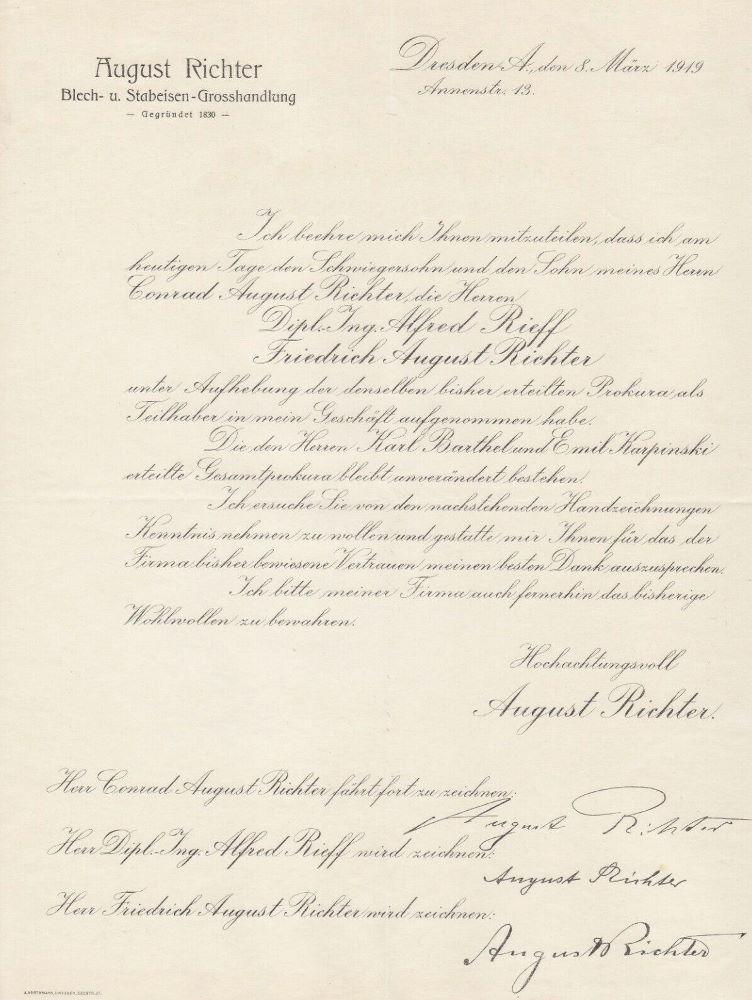 August Richter
Blech- u. Stabeisen-Grosshandlung
— Gegründet 1830 —
Dresden A., den 8. März 1919
Annenstr. 13.
Ich beehre mich Ihnen mitzuteilen, dass ich am
heutigen Tage den Schwiegersohn und den Sohn meines Herrn
Conrad August Richter, die Herren
Dipl.-Ing. Alfred Rieff
Friedrich August Richter
unter Aufhebung der denselben bisher erteilten Prokura als
Teilhaber in mein Geschäft aufgenommen habe.
Die den Herren Karl Barthel und Emil Karpinski
erteilte Gesamtprokura bleibt unverändert bestehen.
Ich ersuche Sie von den nachstehenden Handzeichnungen
Kenntnis nehmen zu wollen und gestatte mir Ihnen für das der
Firma bisher bewiesene Vertrauen meinen besten Dank auszusprechen.
Ich bitte meiner Firma auch fernerhin das bisherige
Wohlwollen zu bewahren.
Hochachtungsvoll
August Richter.
Herr Conrad August Richter fährt fort zu zeichnen:
August Richter
Herr Dipl.-Ing. Alfred Rieff wird zeichnen:
August Richter
Herr Friedrich August Richter wird zeichnen:
August Richter